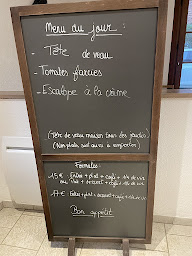 Menu du jour :
- Tête de veau
- Tomates farcies
- Escalope à la crème
(Tête de veau maison tous les jeudis)
(Non plats sud aura a emporter)
Formules :
15 € : Entrée + plat + café + 1/4 de vin
ou plat + dessert + café + 1/4 de vin
17 € : Entrée + plat + dessert + café + 1/4 de vin
Bon appétit